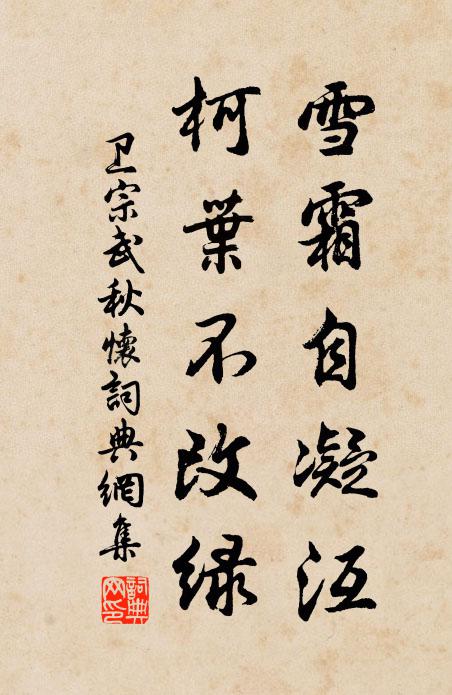 雪霜自凝沍
柯葉不改緑
卫宗武秋懷詞典網集
詞典
网印